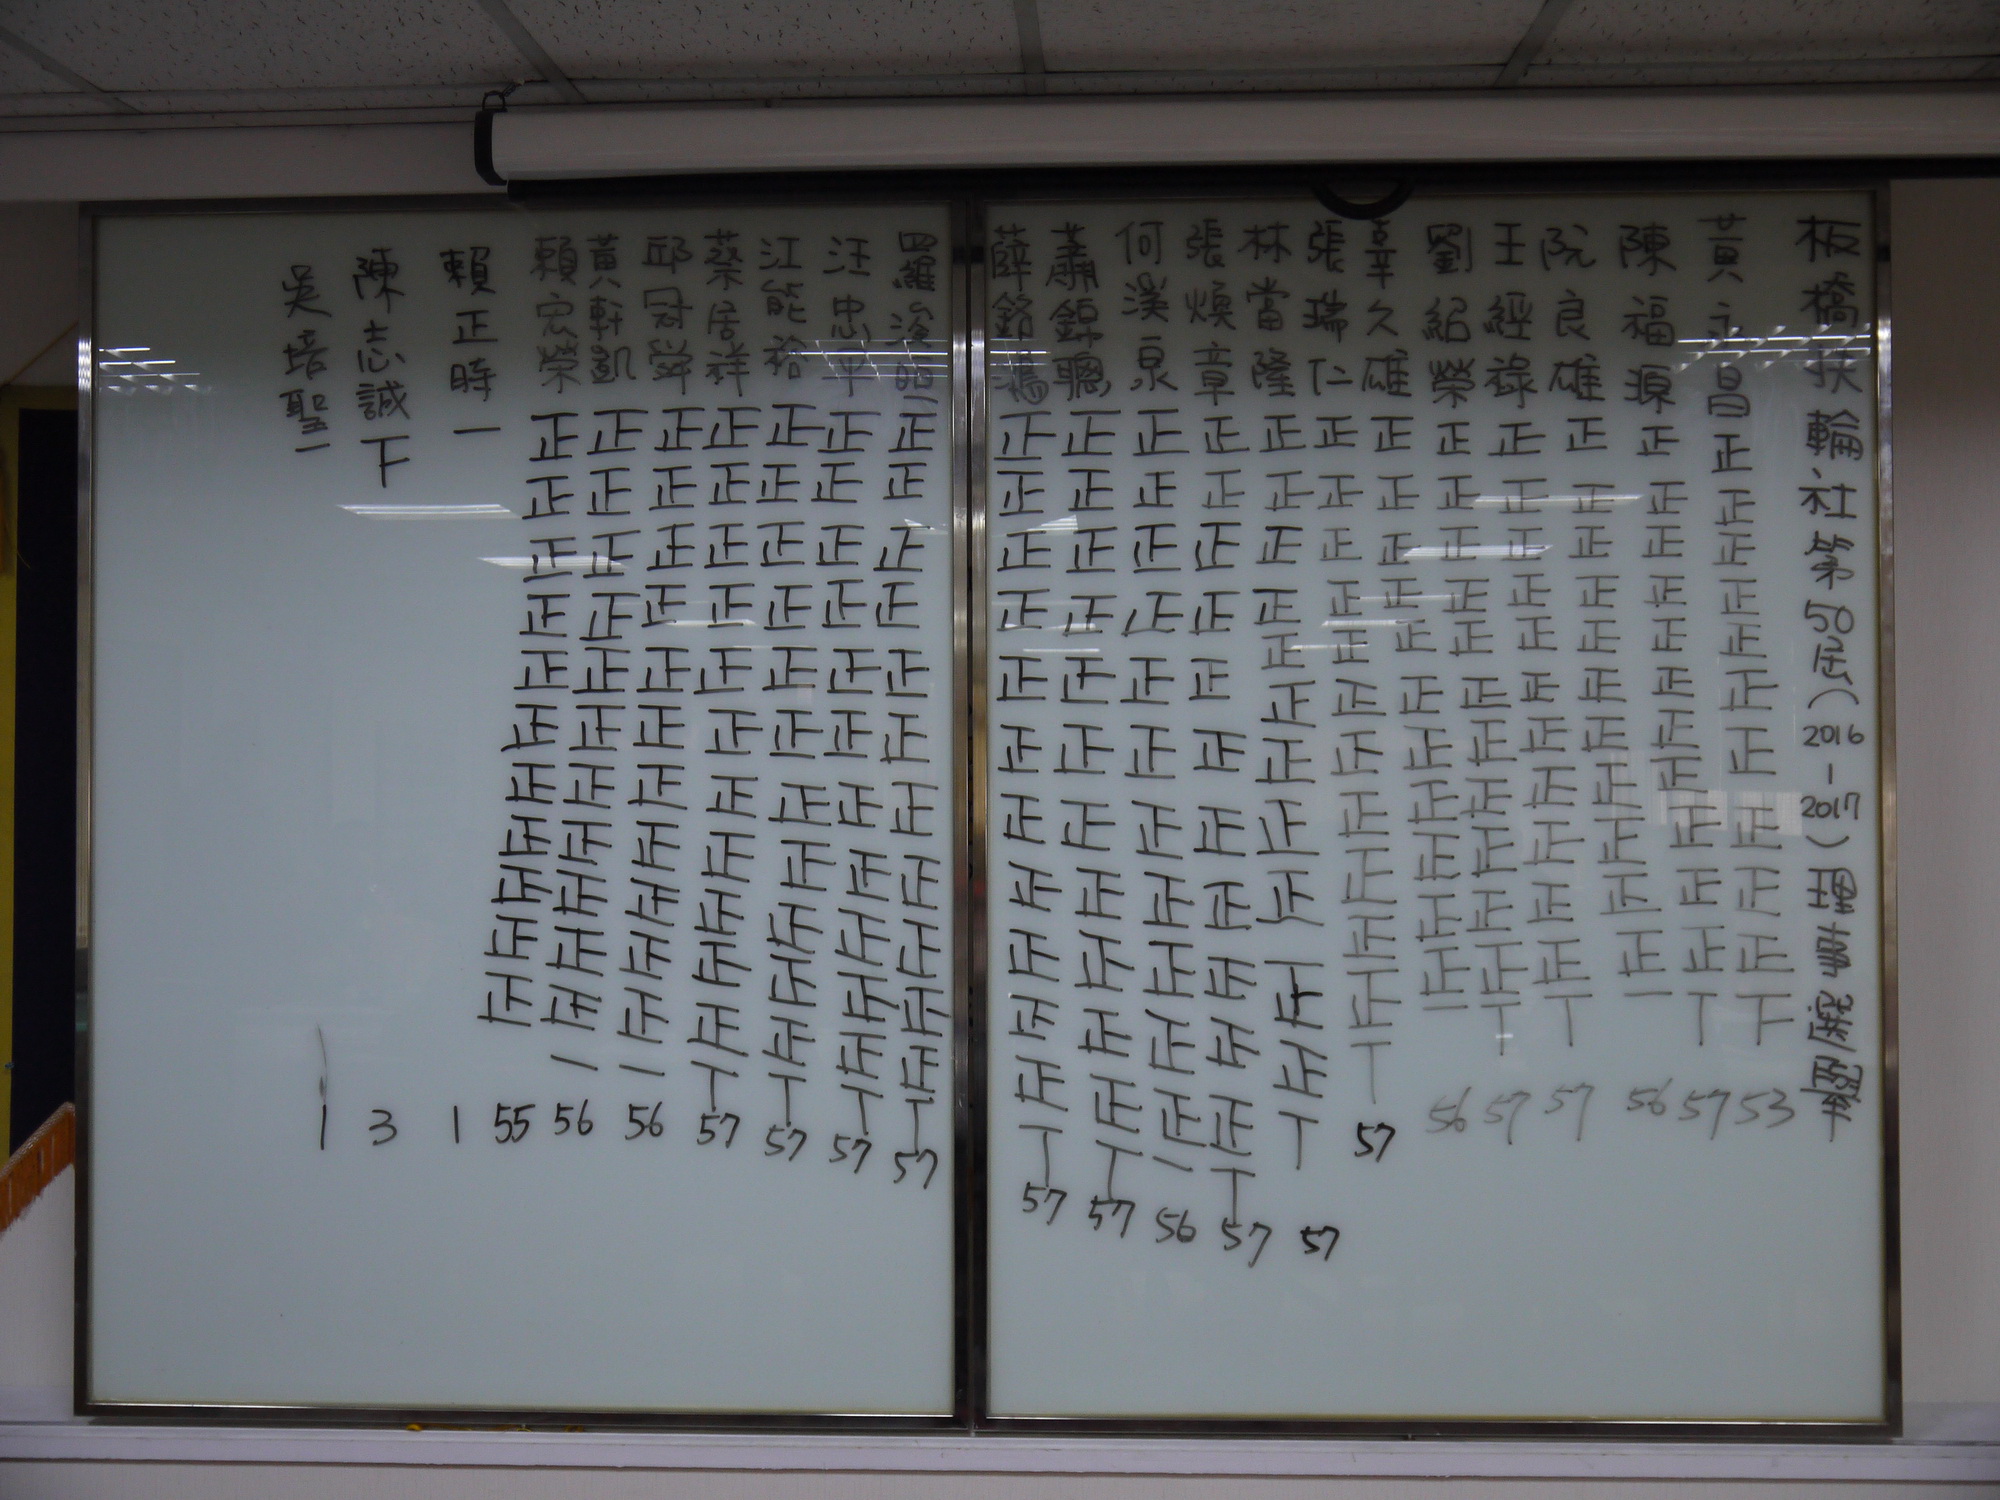 板橋扶輪社第50屆(2016-2017)理事
黃永昌正正正正正正正正正正下53
陳福源正正正正正正正正正正正丅57
阮良雄正正正正正正正正正正正一56
王經祿正正正正正正正正正正正丅57
劉紹榮正正正正正正正正正正正丅57
辛久雄正正正正正正正正正正正一56
張瑞仁正正正正正正正正正正正丅57
林當隆正正正正正正正正正正正丅57
張煥章正正正正正正正正正正正丅57
何溪泉正正正正正正正正正正正一56
蕭錦聰正正正正正正正正正正正丅57
薛銘鴻正正正正正正正正正正正丅57
羅浚正正正正正正正正正正正丅57
汪忠平正正正正正正正正正正正丅57
江能裕正正正正正正正正正正正丅57
蔡居祥正正正正正正正正正正正丅57
邱冠舜正正正正正正正正正正正一56
黃軒凱正正正正正正正正正正正一56
賴宏榮正正正正正正正正正正正55
賴正時一1
陳志誠下3
吳培聖一1